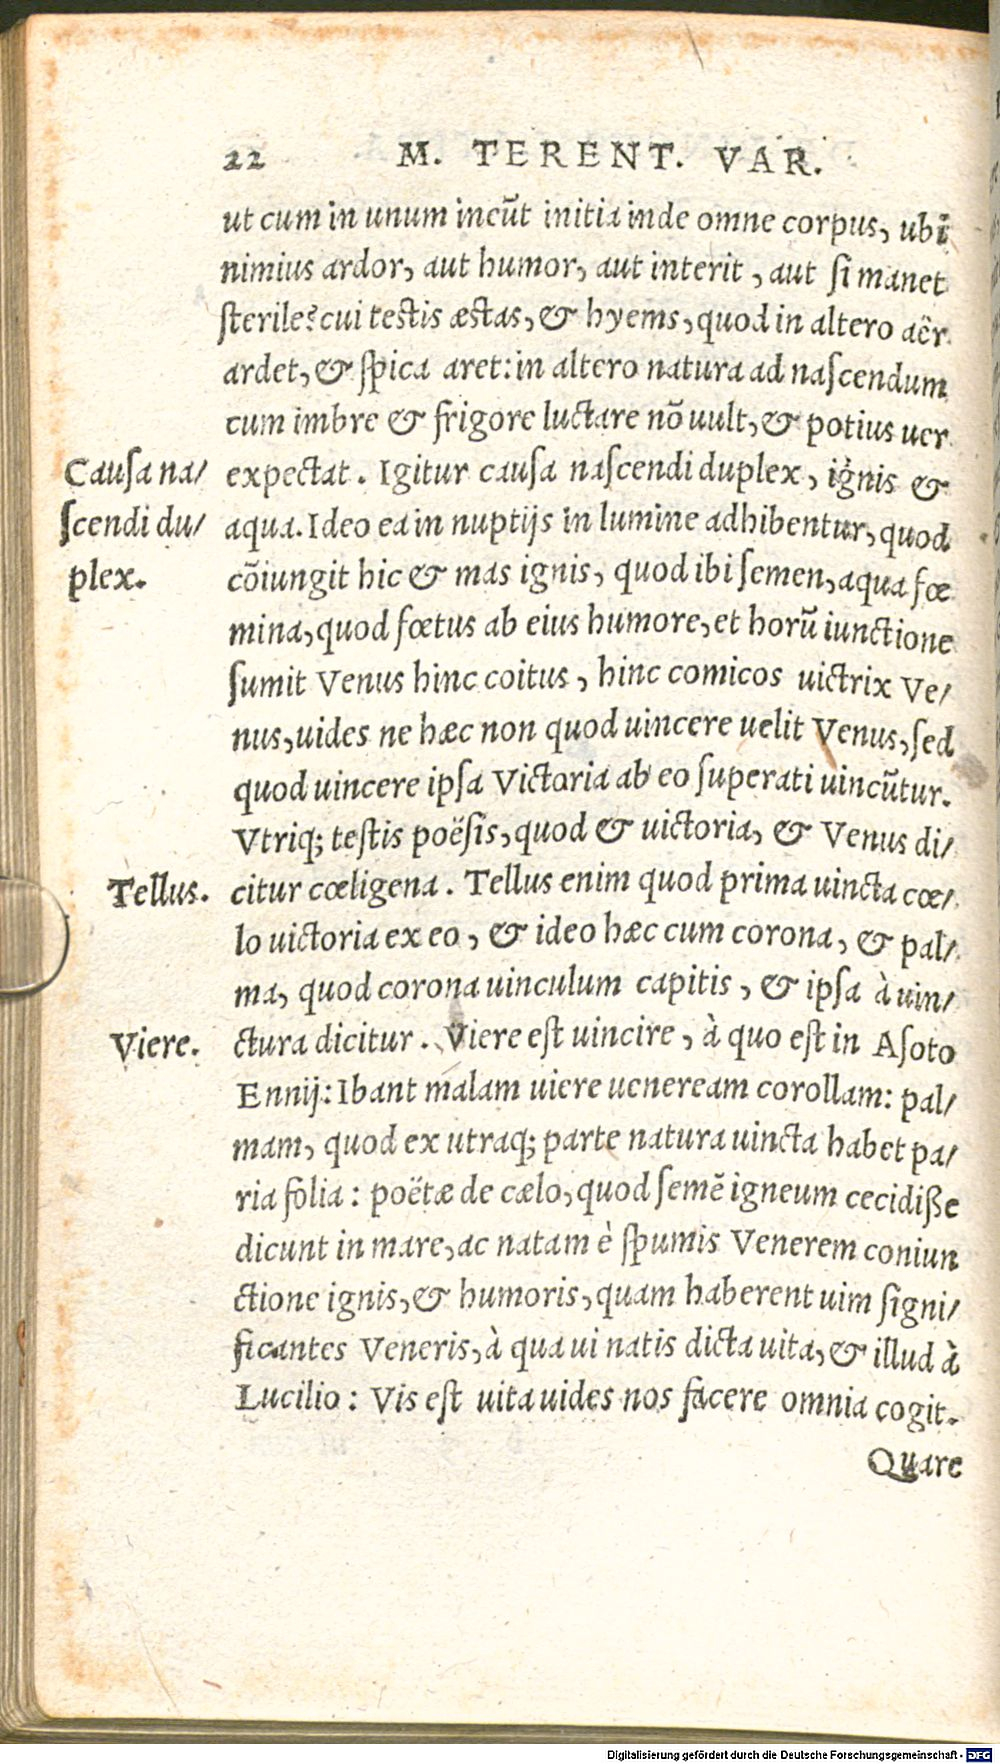 22 M. TERENT. VAR.
ut cum in unum incũt initia inde omne corpus, ubĩ
nimius ardor, aut humor, aut interit, aut si manet
sterile? cui testis æstas, & hyems, quod in altero aër
ardet, & spica aret: in altero natura ad nascendum
cum imbre & frigore luctare nõ uult, & potius uer
Causa na/
scendi du/
plex.
expectat. Igitur causa nascendi duplex, ignis &
aqua. Ideo ea in nuptijs in lumine adhibentur, quod
cõiungit hic & mas ignis, quod ibi semen, aqua fœ
mina, quod fœtus ab eius humore, et horũ iunctione
sumit Venus hinc coitus, hinc comicos uictrix Ve/
nus, uides ne hæc non quod uincere uelit Venus, sed
quod uincere ipsa Victoria ab eo superati uincũtur.
Vtriq; testis poësis, quod & uictoria, & Venus di/
Tellus.
citur cœligena. Tellus enim quod prima uincta cœ/
lo uictoria ex eo, & ideo hæc cum corona, & pal/
ma, quod corona uinculum capitis, & ipsa à uin/
Viere.
ctura dicitur. Viere est uincire, à quo est in Asoto
Ennij: Ibant malam uiere ueneream corollam: pal/
mam, quod ex utraq; parte natura uincta habet pa/
ria folia: poëtæ de cælo, quod semẽ igneum cecidiße
dicunt in mare, ac natam è spumis Venerem coniun
ctione ignis, & humoris, quam haberent uim signi/
ficantes Veneris, à qua ui natis dicta uita, & illud à
Lucilio: Vis est uita uides nos facere omnia cogit.
Quare
Digitalisierung gefördert durch die Deutsche Forschungsgemeinschaft - DFG